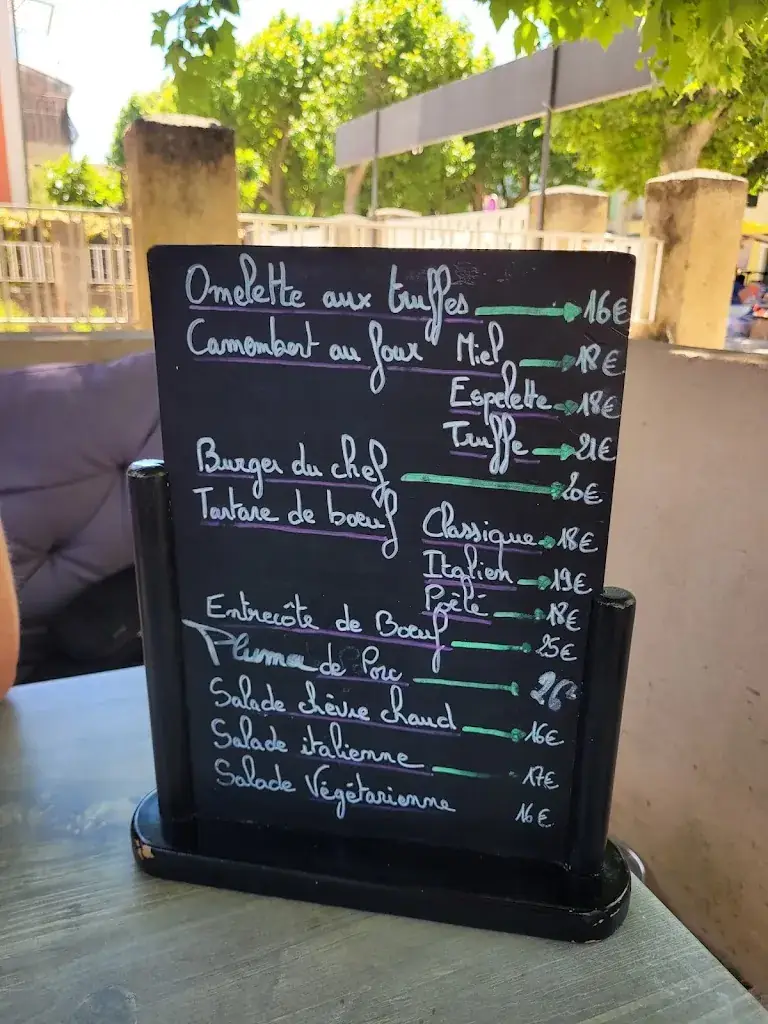 Omelette aux truffes 16€
Camembert au four Miel 18€
Espelette 18€
Truffe 21€
Burger du chef 20€
Tartare de boeuf Classique 18€
Italien 19€
Poêlé 18€
Entrecôte de Boeuf 25€
Pluma de Porc
Salade chèvre chaud 16€
Salade italienne 17€
Salade Végétarienne 16€